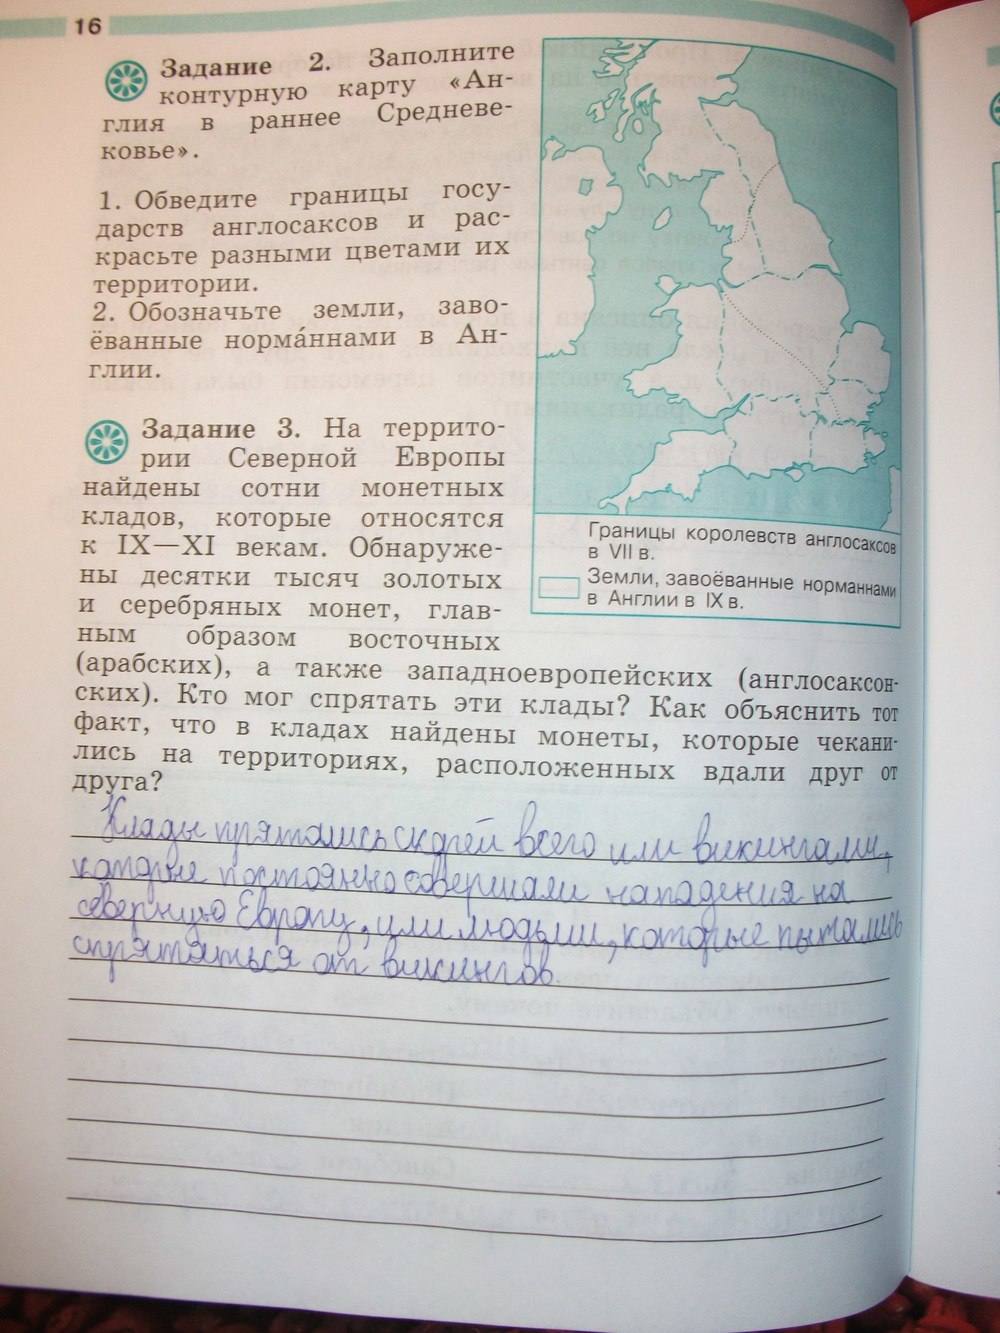 16
Задание 2. Заполните
контурную карту «Ан-
глия в раннее Средневе-
ковье».
1. Обведите границы госу-
дарств англосаксов и рас-
красьте разными цветами их
территории.
2. Обозначьте земли, заво-
ёванные норма́ннами в Ан-
глии.
Границы королевств англосаксов
в VII в.
Земли, завоёванные норманнами
в Англии в IX в.
Задание 3. На террито-
рии Северной Европы
найдены сотни монетных
кладов, которые относятся
к IX—XI векам. Обнаруже-
ны десятки тысяч золотых
и серебряных монет, глав-
ным образом восточных
(арабских), а также западноевропейских (англосаксон-
ских). Кто мог спрятать эти клады? Как объяснить тот
факт, что в кладах найдены монеты, которые чекани-
лись на территориях, расположенных вдали друг от
друга?
Клады прятались скорей всего или викингами,
которые постоянно совершали нападения на
северную Европу, или людьми, которые пытались
спрятаться от викингов.